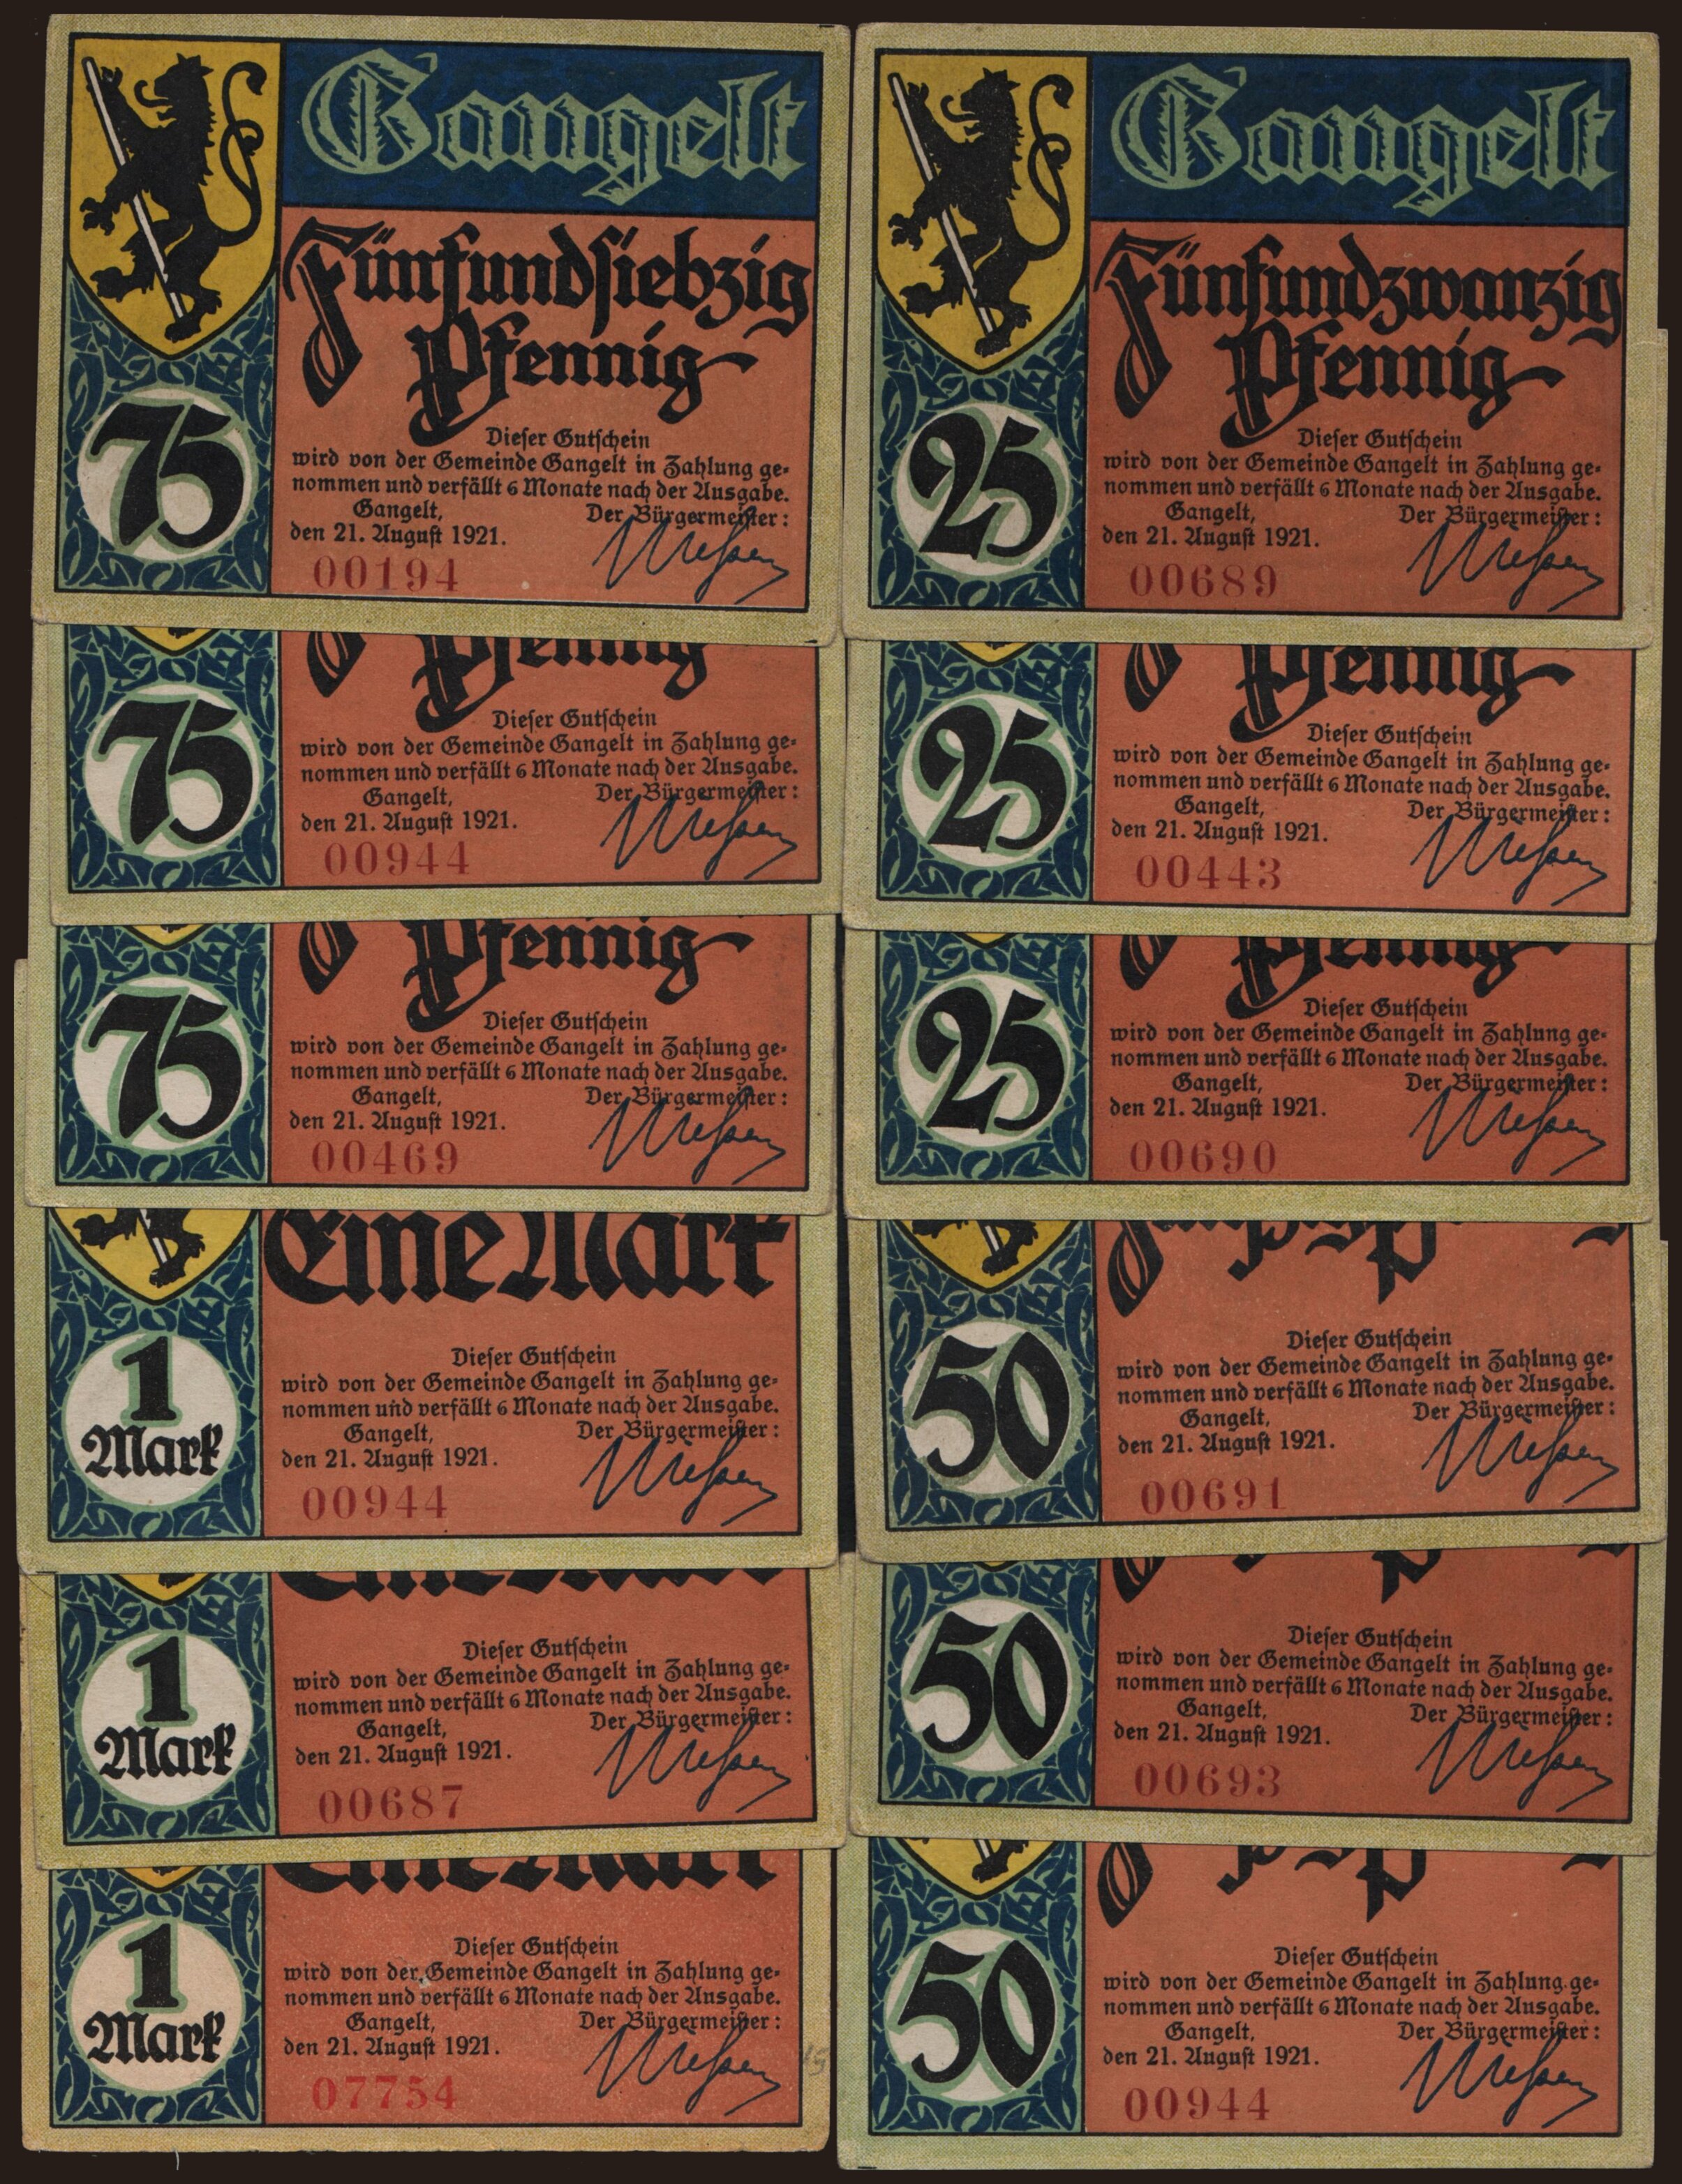 Gangelt
Fünfundsiebzig
Pfennig
75
Dieser Gutschein
wird von der Gemeinde Gangelt in Zahlung ge-
nommen und verfällt 6 Monate nach der Ausgabe.
Gangelt, Der Bürgermeister:
den 21. August 1921.
00194
Pfennig
75
Dieser Gutschein
wird von der Gemeinde Gangelt in Zahlung ge-
nommen und verfällt 6 Monate nach der Ausgabe.
Gangelt, Der Bürgermeister:
den 21. August 1921.
00944
Pfennig
75
Dieser Gutschein
wird von der Gemeinde Gangelt in Zahlung ge-
nommen und verfällt 6 Monate nach der Ausgabe.
Gangelt, Der Bürgermeister:
den 21. August 1921.
00469
Eine Mark
1
Mark
Dieser Gutschein
wird von der Gemeinde Gangelt in Zahlung ge-
nommen und verfällt 6 Monate nach der Ausgabe.
Gangelt, Der Bürgermeister:
den 21. August 1921.
00944
1
Mark
Dieser Gutschein
wird von der Gemeinde Gangelt in Zahlung ge-
nommen und verfällt 6 Monate nach der Ausgabe.
Gangelt, Der Bürgermeister:
den 21. August 1921.
00687
1
Mark
Dieser Gutschein
wird von der Gemeinde Gangelt in Zahlung ge-
nommen und verfällt 6 Monate nach der Ausgabe.
Gangelt, Der Bürgermeister:
den 21. August 1921.
07754
Gangelt
Fünfundzwanzig
Pfennig
25
Dieser Gutschein
wird von der Gemeinde Gangelt in Zahlung ge-
nommen und verfällt 6 Monate nach der Ausgabe.
Gangelt, Der Bürgermeister:
den 21. August 1921.
00689
Pfennig
25
Dieser Gutschein
wird von der Gemeinde Gangelt in Zahlung ge-
nommen und verfällt 6 Monate nach der Ausgabe.
Gangelt, Der Bürgermeister:
den 21. August 1921.
00443
Pfennig
25
Dieser Gutschein
wird von der Gemeinde Gangelt in Zahlung ge-
nommen und verfällt 6 Monate nach der Ausgabe.
Gangelt, Der Bürgermeister:
den 21. August 1921.
00690
50
Dieser Gutschein
wird von der Gemeinde Gangelt in Zahlung ge-
nommen und verfällt 6 Monate nach der Ausgabe.
Gangelt, Der Bürgermeister:
den 21. August 1921.
00691
50
Dieser Gutschein
wird von der Gemeinde Gangelt in Zahlung ge-
nommen und verfällt 6 Monate nach der Ausgabe.
Gangelt, Der Bürgermeister:
den 21. August 1921.
00693
50
Dieser Gutschein
wird von der Gemeinde Gangelt in Zahlung ge-
nommen und verfällt 6 Monate nach der Ausgabe.
Gangelt, Der Bürgermeister:
den 21. August 1921.
00944